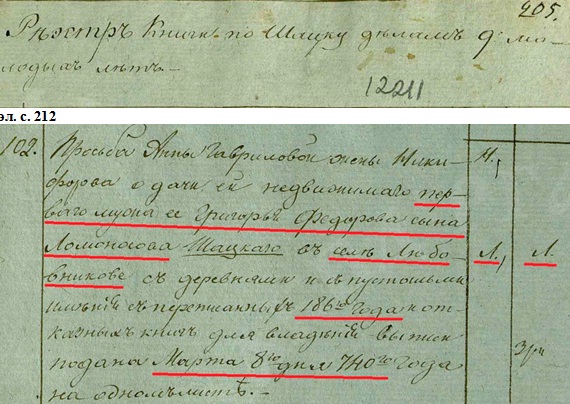 405.
Реэстръ Книги по Шацку дѣламъ о мо-
лодыхъ лѣтъ. —
12211
эл. с. 212
102. Просьба Анны Гавриловой жены Ники-
форова о дачи ей недвижимаго пер-
ваго мужа ее Григорья Федорова сына
Ломоносова Шацкаго въ селѣ Любо-
вникове съ деревнями и съ пустошьми
имѣнiй съ переписныхъ 186го года и от-
казныхъ книгъ для владѣнiй выписи
подана Марта 8го дня 740го Года
на одномъ листѣ. —
Н,
Л, Л.